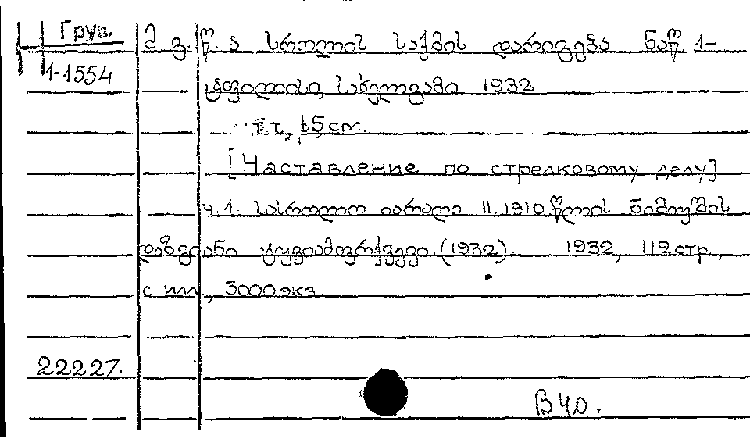 Груз. მ. გ. წ. ა სროლის საქმის დარიგება ნაწ 1-
1-1554 ტფილისი, სახელგამი 1932
т.т., 15 cm.
[Наставление по стрелковому делу]
ч. 1. სასროლო იარაღი 1910 წლის ნიმუშის
(1932). 1932, 112 стр.,
с илл, 3000 экз
22227.
В 40.